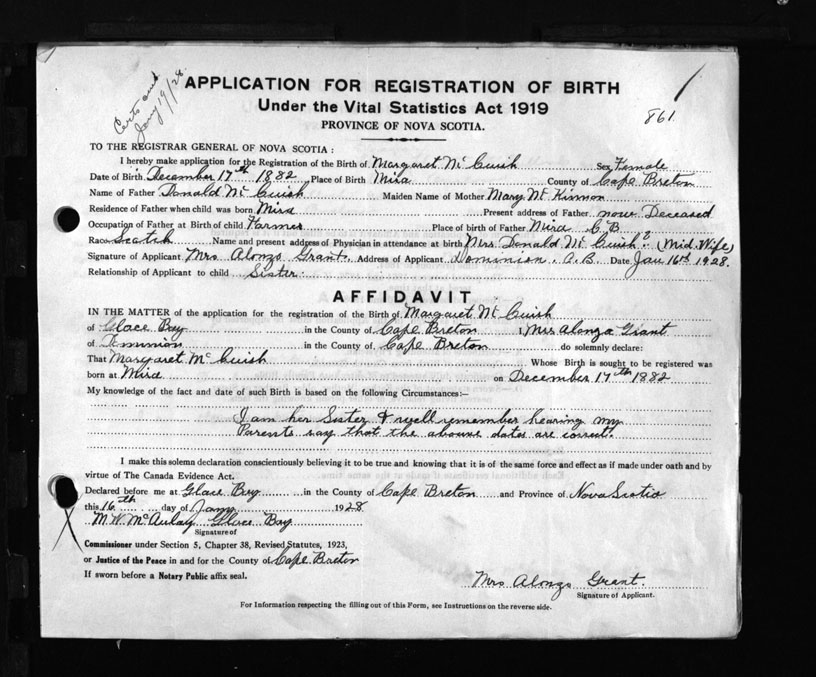 Certs and
Jany 19/28
861
APPLICATION FOR REGISTRATION OF BIRTH
Under the Vital Statistics Act 1919
PROVINCE OF NOVA SCOTIA.
TO THE REGISTRAR GENERAL OF NOVA SCOTIA :
I hereby make application for the Registration of the Birth of Margaret Mc Cuish Sex Female
Date of Birth December 17th 1882 Place of Birth Mira County of Cape Breton
Name of Father Donald Mc Cuish Maiden Name of Mother Mary Mc Kinnon
Residence of Father when child was born Mira Present address of Father now Deceased
Occupation of Father at Birth of child Farmer Place of birth of Father Mira C.B.
Race Scotch Name and present address of Physician in attendance at birth Mrs Donald Mc Cuish? (Mid. Wife)
Signature of Applicant Mrs Alonzo Grant. Address of Applicant Dominion, C.B. Date Jan 16th 1928.
Relationship of Applicant to child Sister.
AFFIDAVIT
IN THE MATTER of the application for the registration of the Birth of Margaret Mc Cuish
of Glace Bay in the County of Cape Breton I, Mrs Alonza Grant
of Dominion in the County of Cape Breton do solemnly declare:
That Margaret Mc Cuish Whose Birth is sought to be registered was
born at Mira on December 17th 1882
My knowledge of the fact and date of such Birth is based on the following Circumstances:—
I am her Sister & well remember hearing my
Parents say that the above dates are correct.
I make this solemn declaration conscientiously believing it to be true and knowing that it is of the same force and effect as if made under oath and by
virtue of The Canada Evidence Act.
Declared before me at Glace Bay in the County of Cape Breton and Province of Nova Scotia
this 16th day of Jany 1928
M.W. McAulay Glace Bay
Signature of
Commissioner under Section 5, Chapter 38, Revised Statutes, 1923,
or Justice of the Peace in and for the County of Cape Breton
If sworn before a Notary Public affix seal.
Mrs Alonzo Grant.
Signature of Applicant.
For Information respecting the filling out of this Form, see Instructions on the reverse side.